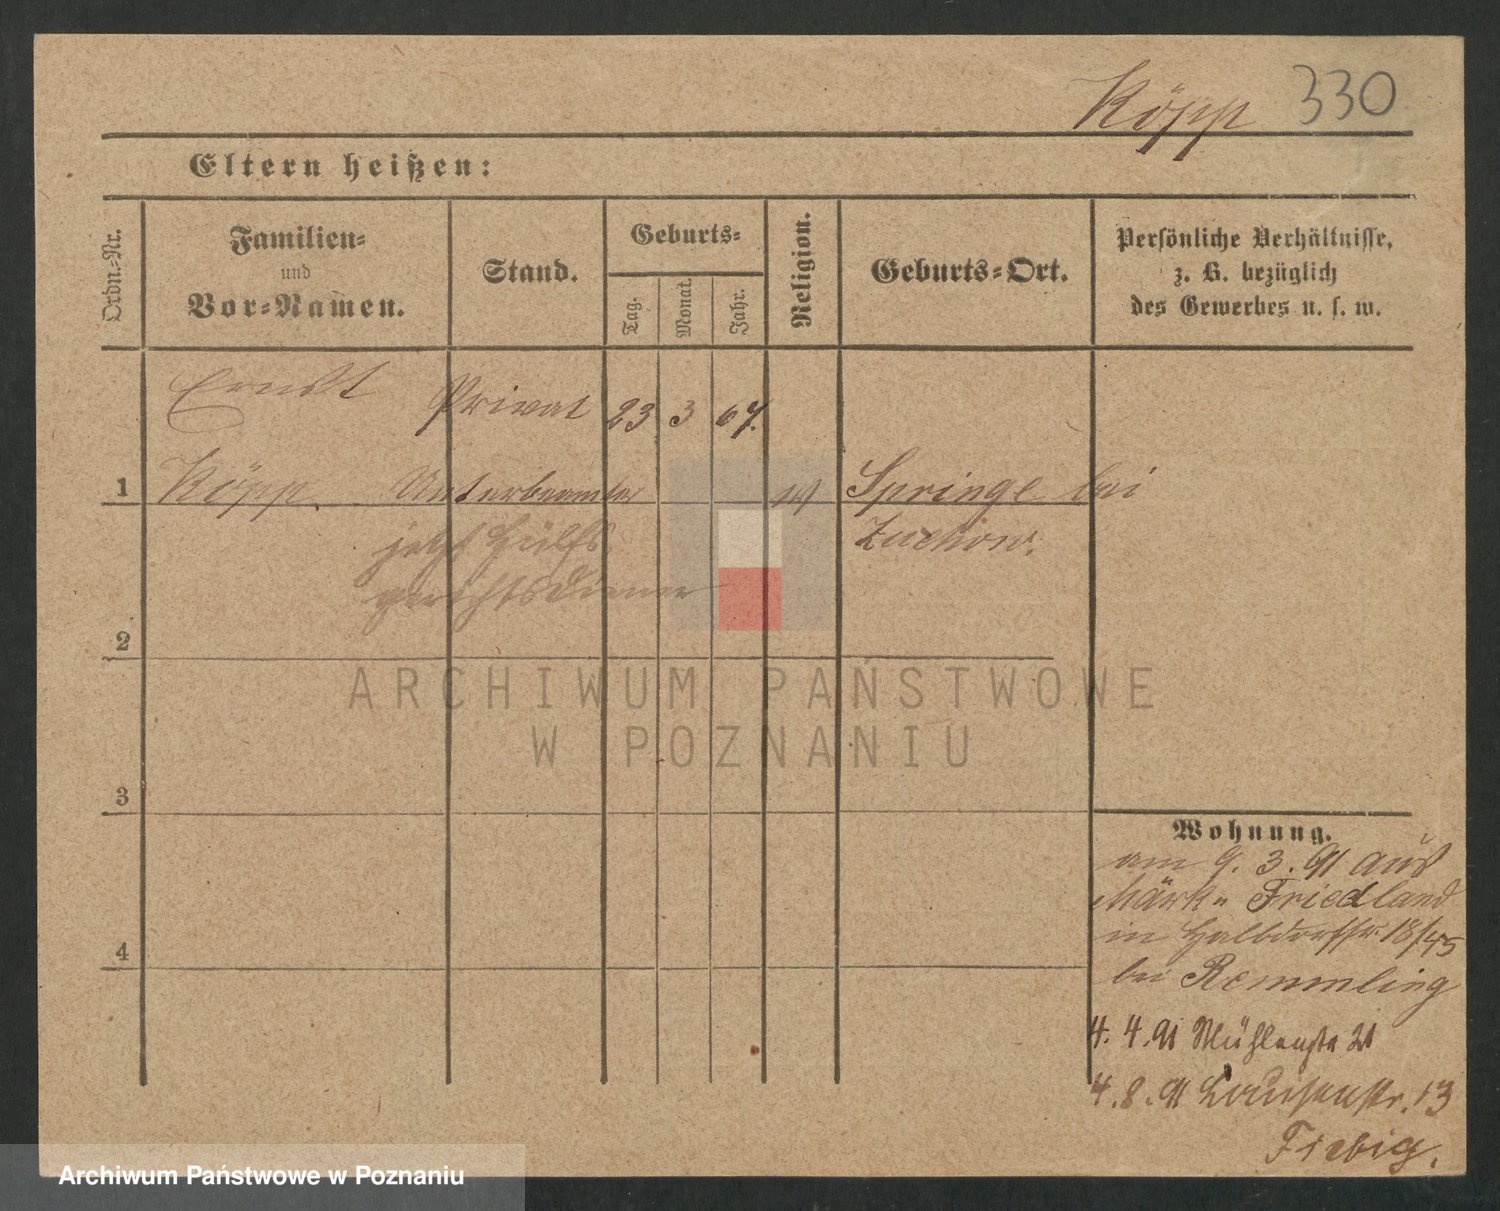 Köpp 330
Eltern heißen:
Ordn.-Nr.
Familien-
und
Vor-Namen.
Stand.
Geburts-
Tag.
Monat.
Jahr.
Religion.
Geburts-Ort.
Persönliche Verhältnisse,
z. B. bezüglich
des Gewerbes u. s. w.
Ernst Privat 23 3 67.
1 Köpp. Unterbeamter Springe bei
jetzt Hülfs Zuchow.
gerichtsdiener
2
ARCHIWUM PAŃSTWOWE
W POZNANIU
3
Wohnung.
am 9. 3. 91 aus
Märk. Friedland
in Halbdorfstr. 18/45
bei Remmling
4
4. 4. 91 Mühlenstr 21
4. 8. 91 Louisenstr. 13
Fiebig.
Archiwum Państwowe w Poznaniu